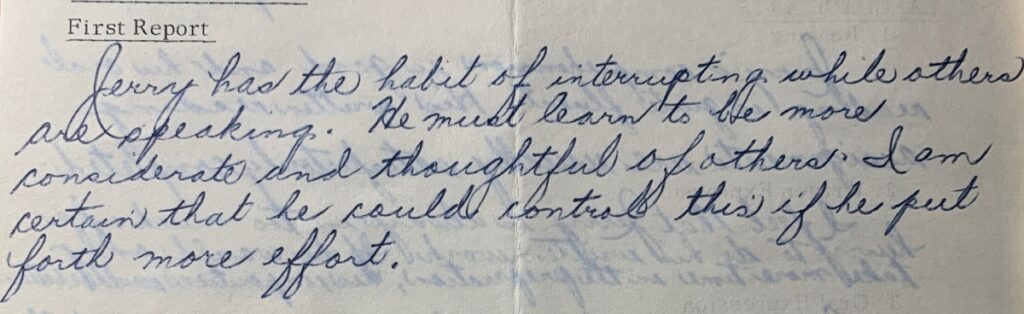 First Report
Jerry has the habit of interrupting while others
are speaking. He must learn to be more
considerate and thoughtful of others. I am
certain that he could control this if he put
forth more effort.